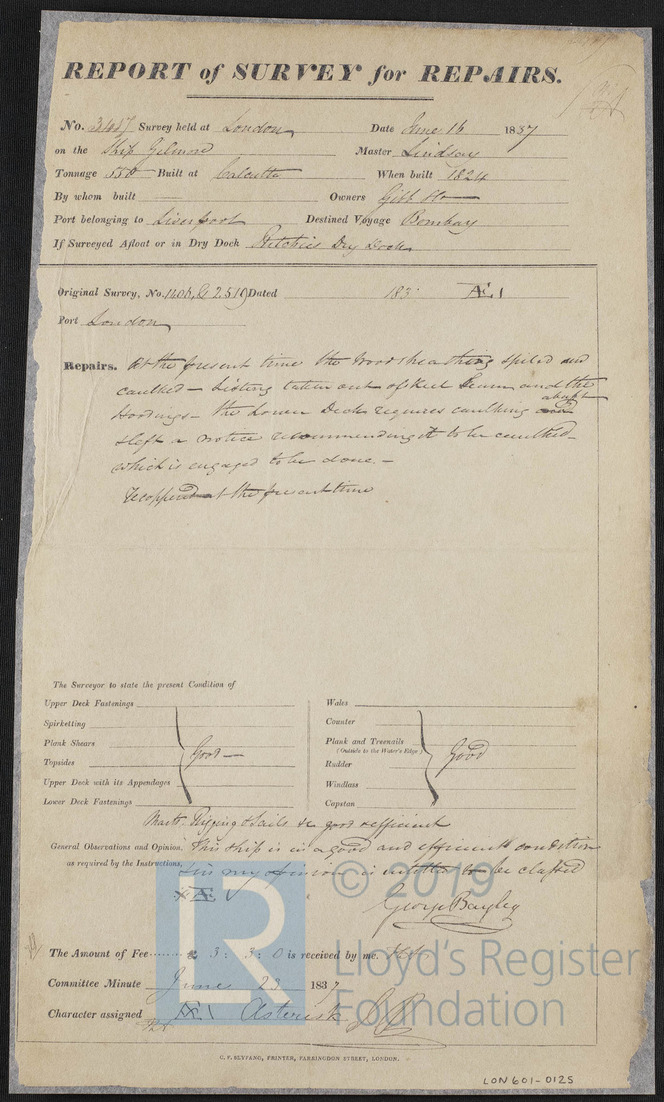 REPORT of SURVEY for REPAIRS.
No. 3417 Survey held at London Date June 16 1837
on the Ship Gilmore Master Lindsay
Tonnage 550 Built at Calcutta When built 1824
By whom built — Owners Gibb &
Port belonging to Liverpool Destined Voyage Bombay
If Surveyed Afloat or in Dry Dock Ritchies Dry Dock
Original Survey, No. Dated 183 Æ 1
Port London
Repairs. At the present time the Woodsheathing spiled and
caulked — Listing taken out of Keel Seam and the
Hoodings — the Lower Deck requires caulking abaft
I left a notice recommending it to be caulked
which is engaged to be done. —
Recoppered at the present time
The Surveyor to state the present Condition of
Upper Deck Fastenings
Spirketting
Plank Shears
Topsides
Upper Deck with its Appendages
Lower Deck Fastenings
Good —
Wales
Counter
Plank and Treenails
(Outside to the Water's Edge)
Rudder
Windlass
Capstan
Good
Masts Rigging & Sails &c good & efficient
General Observations and Opinion, This Ship is in a good and efficient condition
as required by the Instructions, & in my opinion is entitled to be classed
* Æ 1
George Bayley
The Amount of Fee £ 3 : 3 : 0 is received by me.
Committee Minute June 23 1837
Character assigned Æ 1 Asterisk
C. F. SEYFANG, PRINTER, FARRINGDON STREET, LONDON.
LON601-0125
© 2019
Lloyd's Register
Foundation
LR